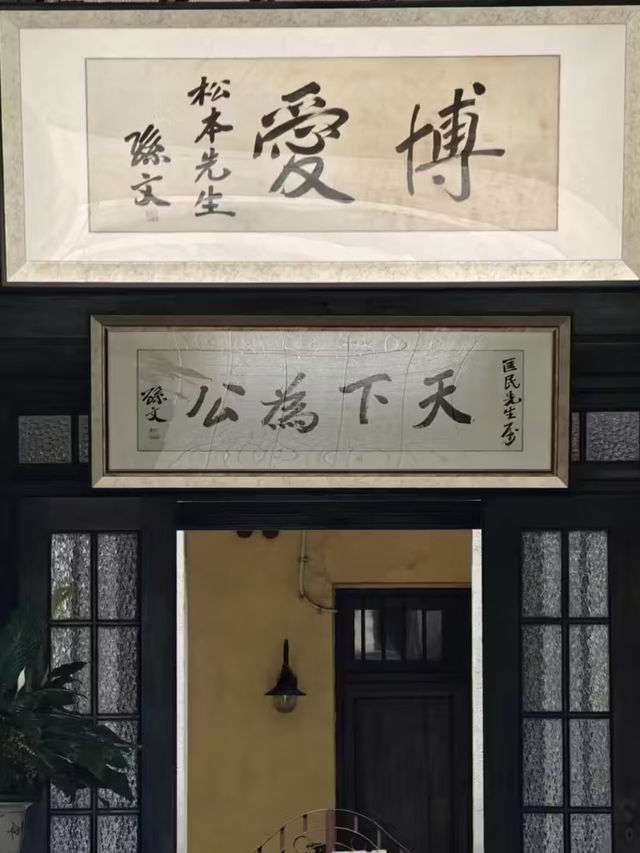 博愛
松本先生
孫文
匡民先生屬
天下為公
孫文